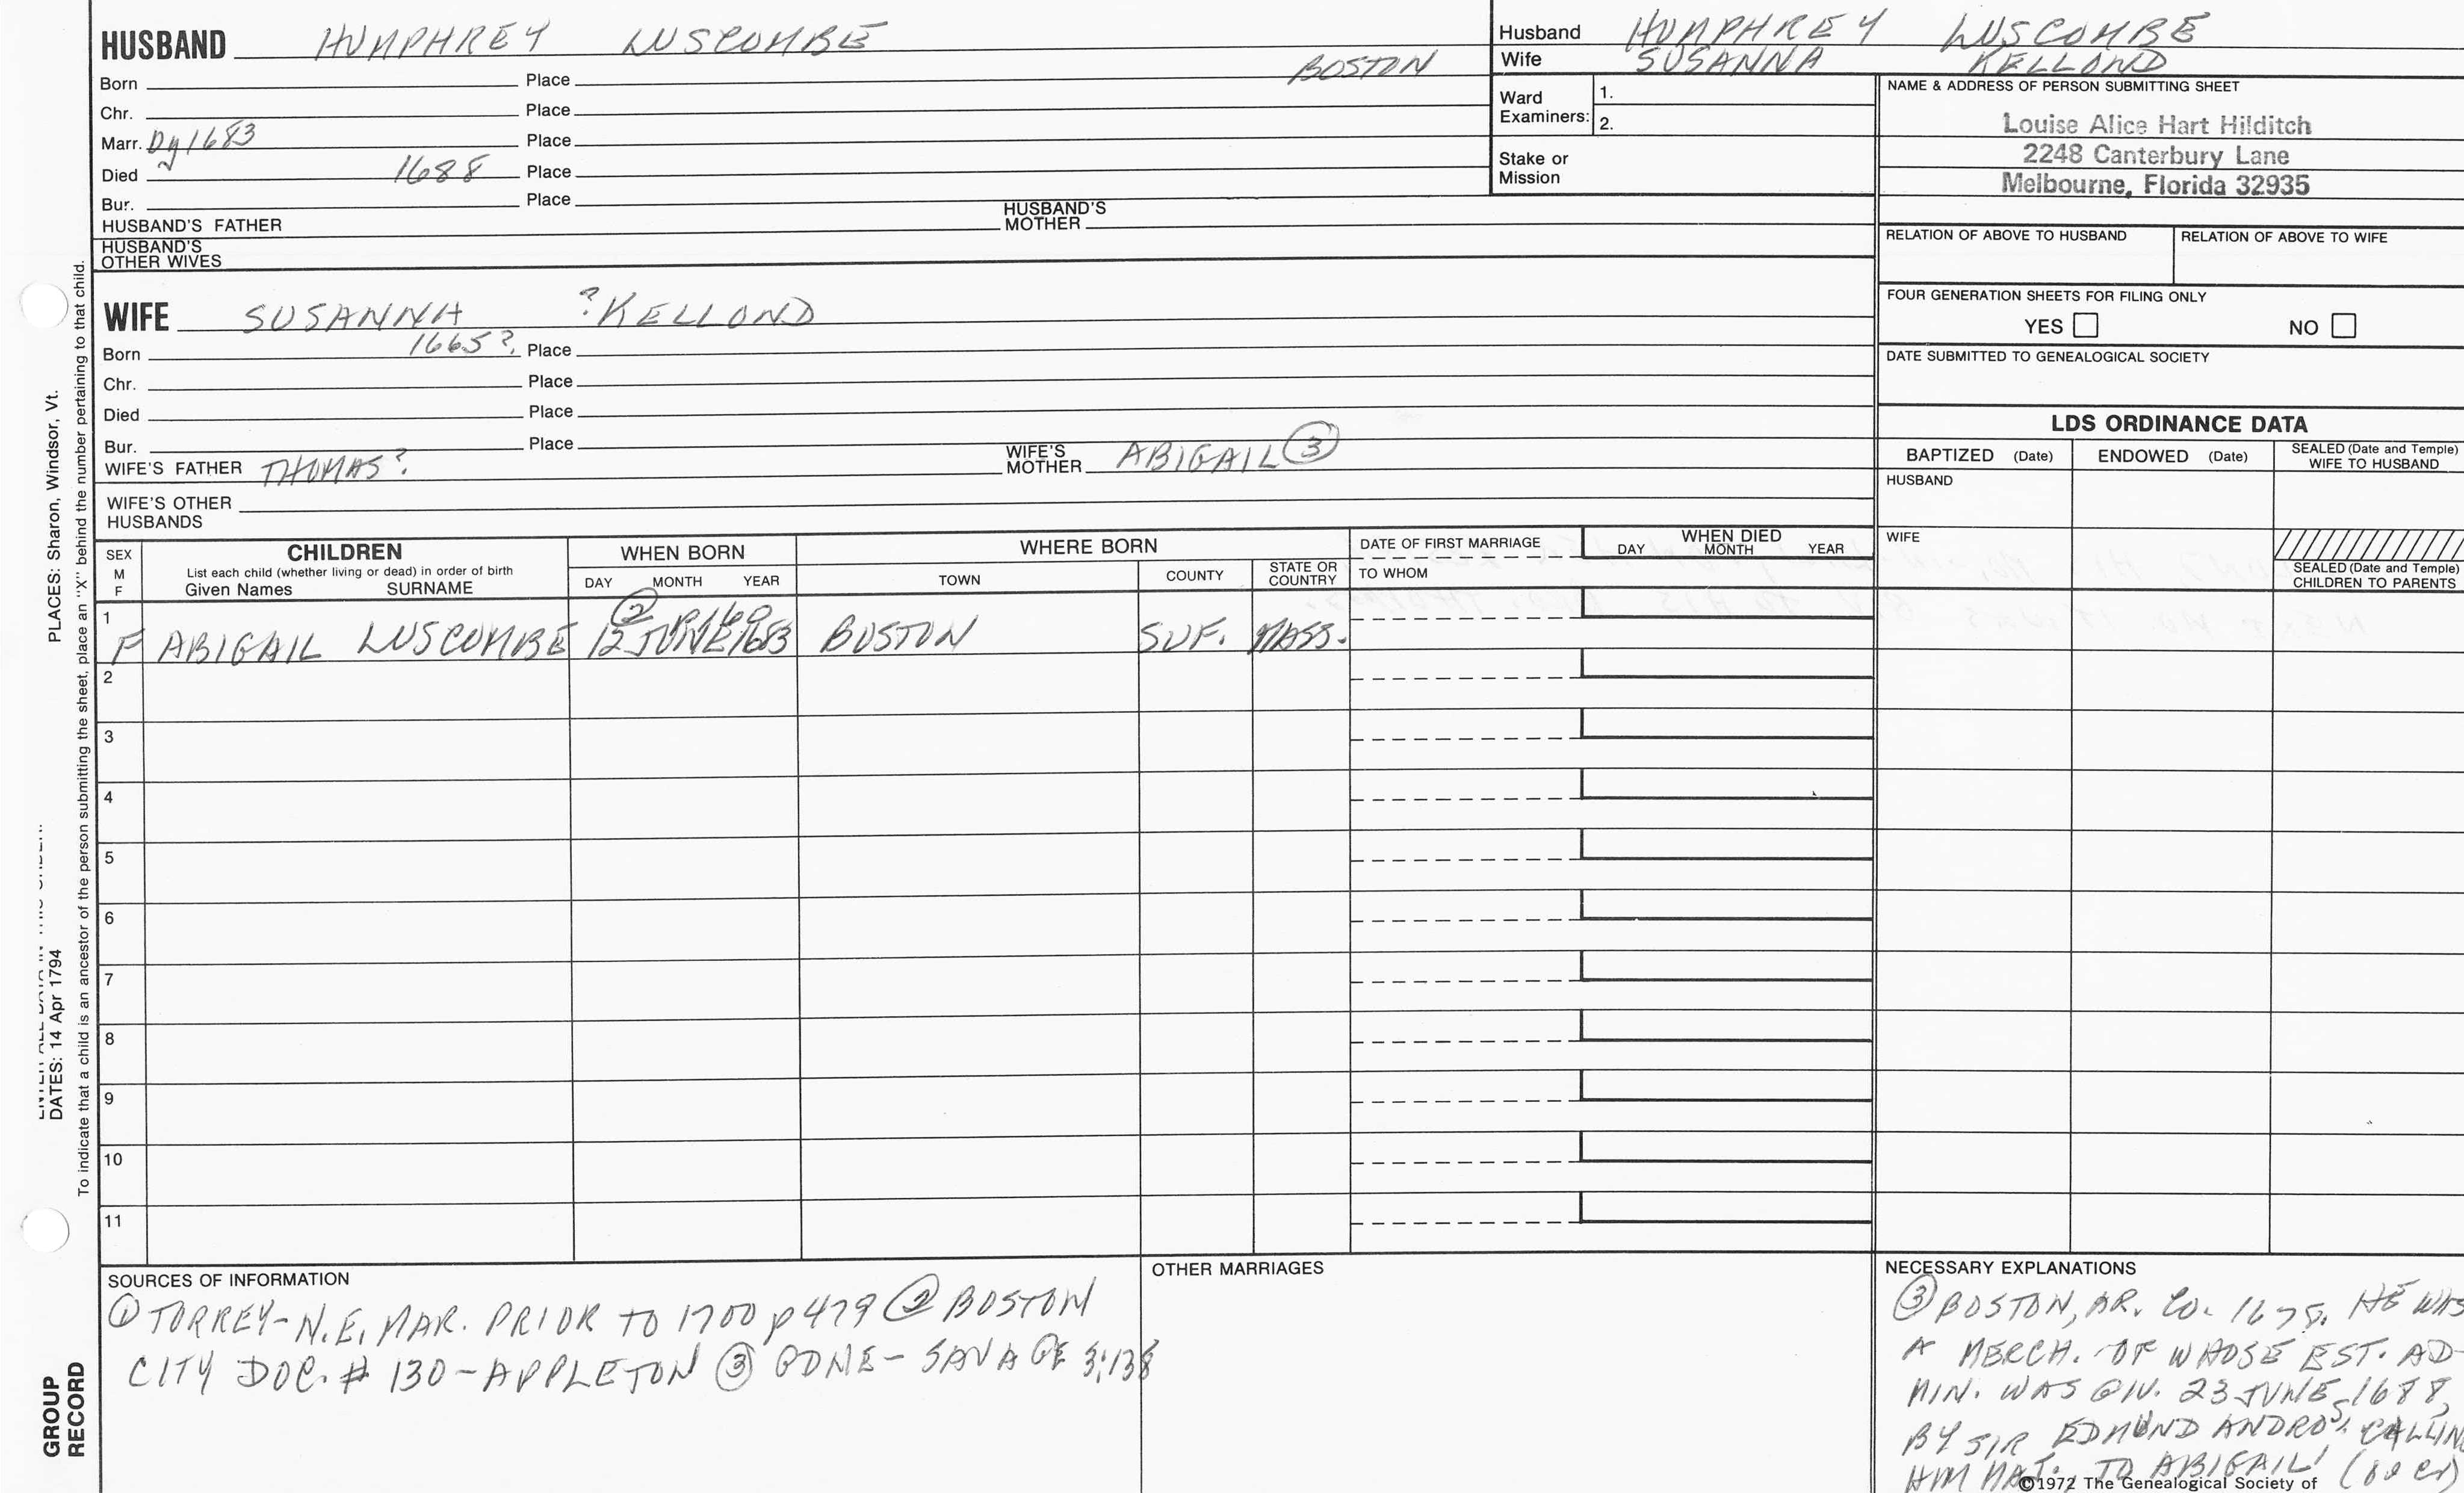 HUSBAND HUMPHREY LUSCOMBE
Born Place BOSTON
Chr. Place
Marr. By 1683 Place
Died 1688 Place
Bur. Place
HUSBAND'S FATHER HUSBAND'S MOTHER
HUSBAND'S OTHER WIVES
Husband HUMPHREY LUSCOMBE
Wife SUSANNA KELLOND
Ward Examiners: 1.
2.
Stake or Mission
NAME & ADDRESS OF PERSON SUBMITTING SHEET
Louise Alice Hart Hilditch
2248 Canterbury Lane
Melbourne, Florida 32935
RELATION OF ABOVE TO HUSBAND RELATION OF ABOVE TO WIFE
FOUR GENERATION SHEETS FOR FILING ONLY
YES NO
DATE SUBMITTED TO GENEALOGICAL SOCIETY
WIFE SUSANNA ?KELLOND
Born 1665?. Place
Chr. Place
Died Place
Bur. Place
WIFE'S FATHER THOMAS? WIFE'S MOTHER ABIGAIL ③
WIFE'S OTHER HUSBANDS
LDS ORDINANCE DATA
BAPTIZED (Date) ENDOWED (Date) SEALED (Date and Temple) WIFE TO HUSBAND
HUSBAND
WIFE
SEALED (Date and Temple) CHILDREN TO PARENTS
SEX M F
CHILDREN
List each child (whether living or dead) in order of birth
Given Names SURNAME
WHEN BORN
DAY MONTH YEAR
WHERE BORN
TOWN COUNTY STATE OR COUNTRY
DATE OF FIRST MARRIAGE
TO WHOM
WHEN DIED
DAY MONTH YEAR
1
②
F ABIGAIL LUSCOMBE 12 JUNE 1683 BOSTON SUF. MASS.
2
3
4
5
6
7
8
9
10
11
SOURCES OF INFORMATION
① TORREY-N.E. MAR. PRIOR TO 1700 p479 ② BOSTON
CITY DOC. # 130-APPLETON ③ - SAVAGE 3:138
OTHER MARRIAGES
NECESSARY EXPLANATIONS
③ BOSTON, AR. Co. 1678. HE WAS
A MERCH. OF WHOSE EST. AD-
MIN. WAS GIV. 23 JUNE 1688,
BY SIR EDMUND ANDROS, CALLIN
HIM NAT. TO ABIGAIL
©1972 The Genealogical Society of
PLACES: Sharon, Windsor, Vt.
DATES: 14 Apr 1794
To indicate that a child is an ancestor of the person submitting the sheet, place an "X" behind the number pertaining to that child.
GROUP
RECORD